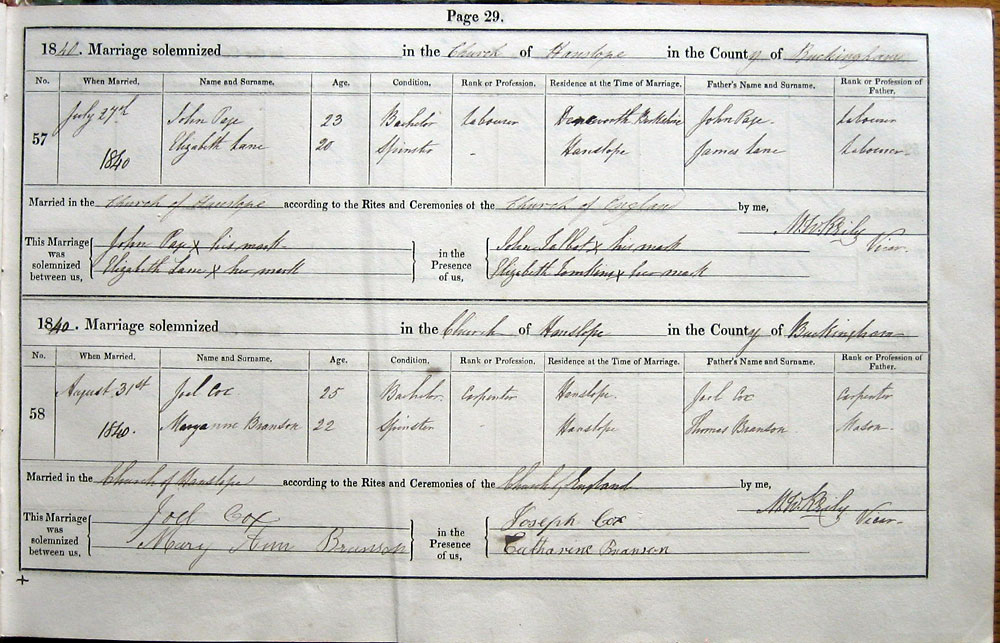 Page 29.
1840. Marriage solemnized in the Church of Hanslope in the County of Buckingham
No. When Married. Name and Surname. Age. Condition. Rank or Profession. Residence at the Time of Marriage. Father's Name and Surname. Rank or Profession of Father.
57 July 27th John Page 23 Bachelor Labourer Berkshire John Page. Labourer
1840 Elizabeth Lane 20 Spinster - Hanslope James Lane Labourer
Married in the Church of Hanslope according to the Rites and Ceremonies of the Church of England by me,
Vicar.
This Marriage was solemnized between us, John Page x his mark in the Presence of us, John Talbot x his mark
Elizabeth Lane x her mark Elizabeth Tomkins x her mark
1840. Marriage solemnized in the Church of Hanslope in the County of Buckingham
No. When Married. Name and Surname. Age. Condition. Rank or Profession. Residence at the Time of Marriage. Father's Name and Surname. Rank or Profession of Father.
58 August 31st Joel Cox 25 Bachelor Carpenter Hanslope. Joel Cox Carpenter
1840. Maryanne Branson 22 Spinster - Hanslope Thomas Branson Mason.
Married in the Church of Hanslope according to the Rites and Ceremonies of the Church of England by me,
Vicar.
This Marriage was solemnized between us, Joel Cox in the Presence of us, Joseph Cox
Mary Ann Brunson Catharine Branson